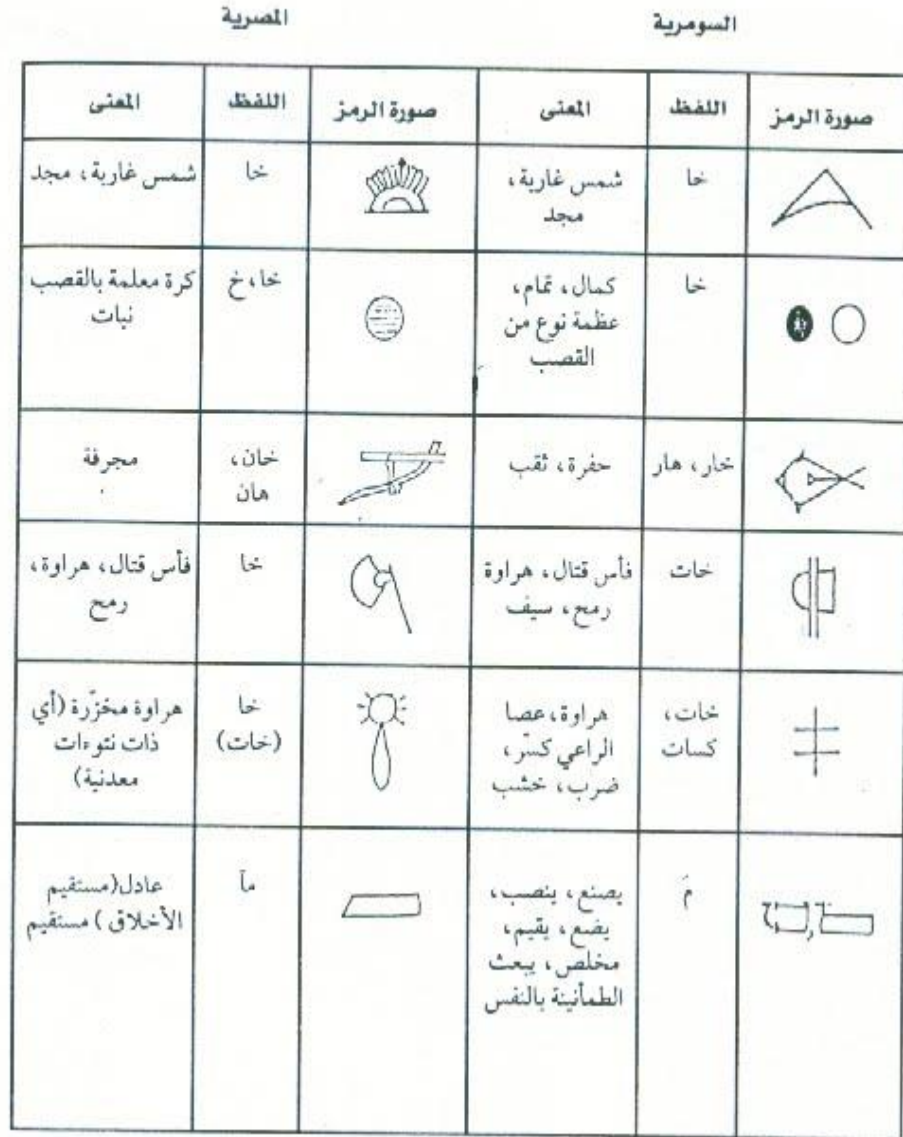 السومرية
المصرية
صورة الرمز
اللفظ
المعنى
صورة الرمز
اللفظ
المعنى
خا
شمس غاربة،
مجد
خا
شمس غاربة، مجد
خا
كمال، تمام،
عظمة نوع من
القصب
خا، خ
كرة معلمة بالقصب
نبات
خار، هار
حفرة، ثقب
خان،
هان
مجرفة
خات
فأس قتال، هراوة
رمح، سيف
خا
فأس قتال، هراوة،
رمح
خات،
كسات
هراوة، عصا
الراعي كسّر،
ضرب، خشب
خا
(خات)
هراوة مخرّزة (أي
ذات نتوءات
معدنية)
مَ
يصنع، ينصب،
يضع، يقيم،
مخلص، يبعث
الطمأنينة بالنفس
مآ
عادل (مستقيم
الأخلاق) مستقيم